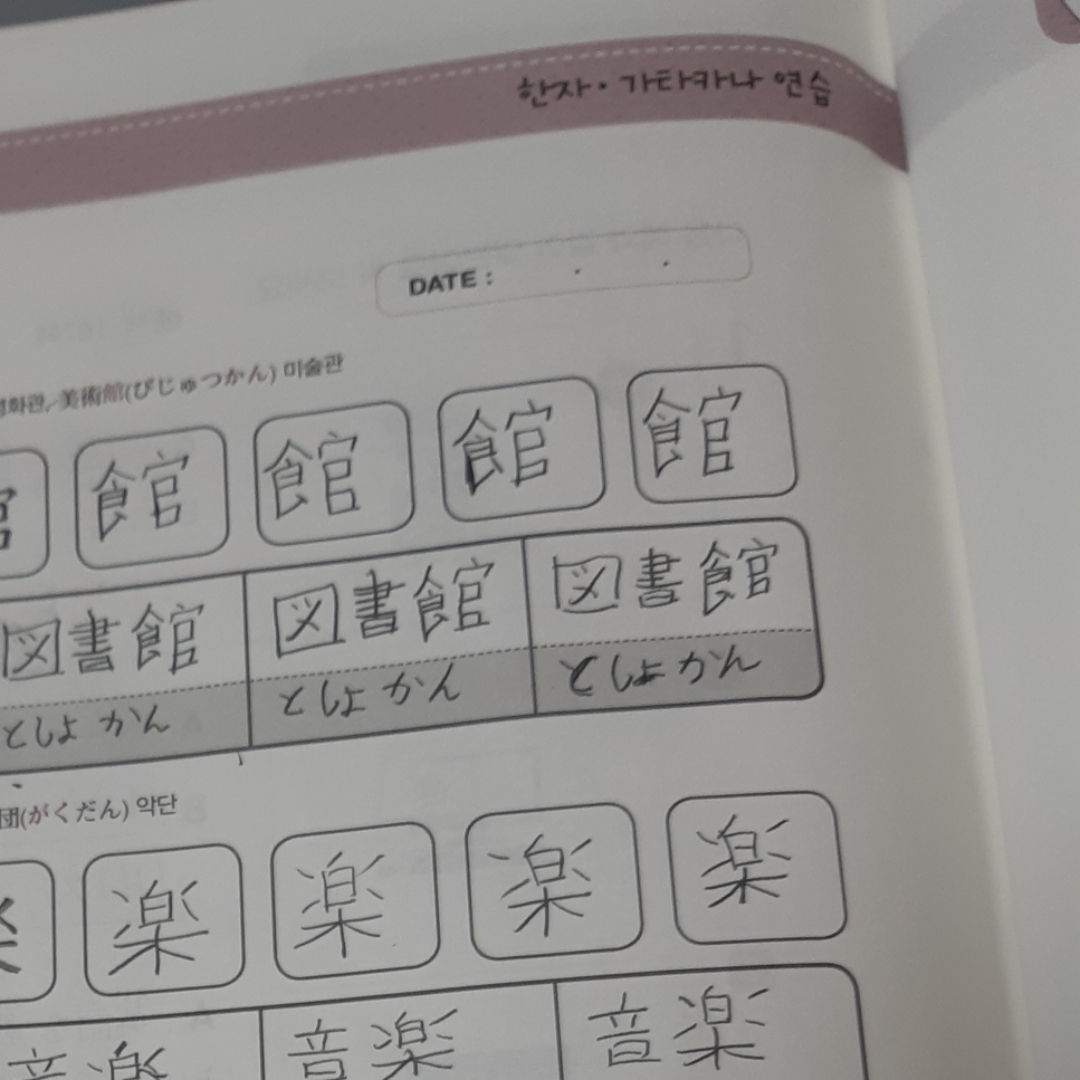 한자・가타카나 연습
DATE :
영화관, 美術館(びじゅつかん) 미술관
館 館 館 館 館
図書館 図書館 図書館
としょかん としょかん としょかん
団(がくだん) 악단
楽 楽 楽 楽 楽
音楽 音楽 音楽